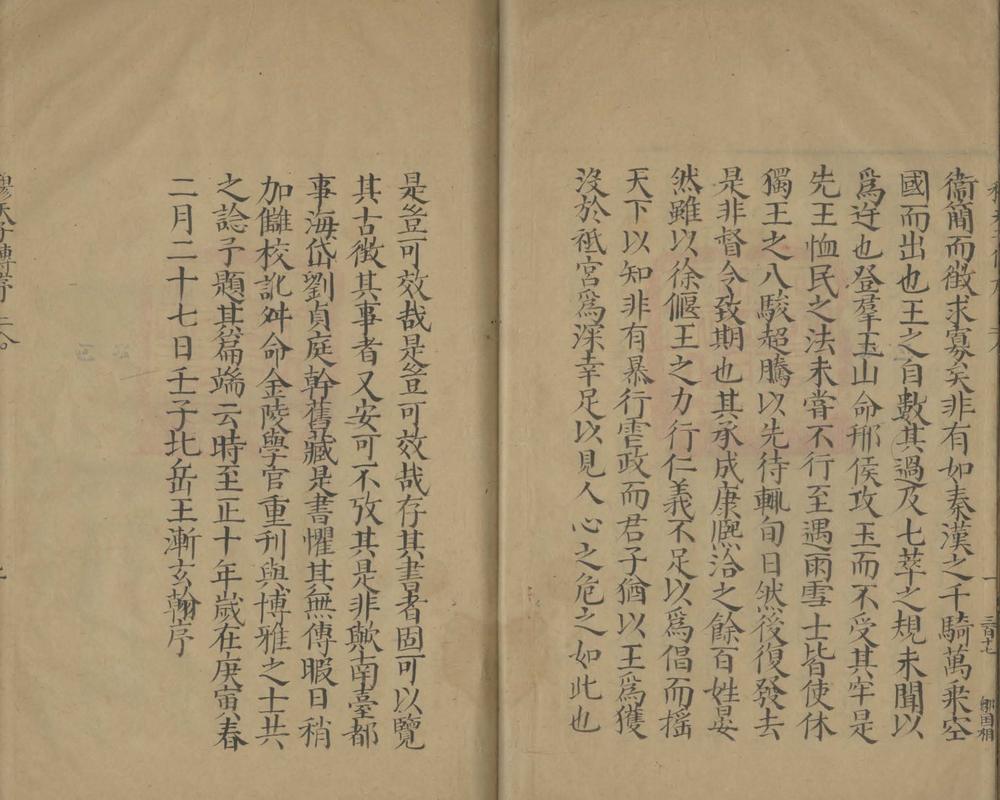 衞簡而徵求寡矣非有如秦漢之千騎萬乘空
國而出也王之自數其過及七萃之規未聞以
爲迕也登羣玉山命邢侯攻玉而不受其牢是
先王恤民之法未嘗不行至遇雨雪士皆使休
獨王之八駿超騰以先待輒旬日然後復發去
是非督令致期也其承成康熈洽之餘百姓晏
然雖以徐偃王之力行仁義不足以爲倡而揺
天下以知非有暴行虐政而君子猶以王爲獲
沒於祗宮爲深幸足以見人心之危之如此也
是豈可效哉是豈可效哉存其書者固可以覽
其古徵其事者又安可不攷其是非歟南臺都
事海岱劉貞庭幹舊藏是書懼其無傳暇日稍
加讎校訛舛命金陵學官重刊與博雅之士共
之諗予題其篇端云時至正十年歲在庚寅春
二月二十七日壬子北岳王漸玄翰序